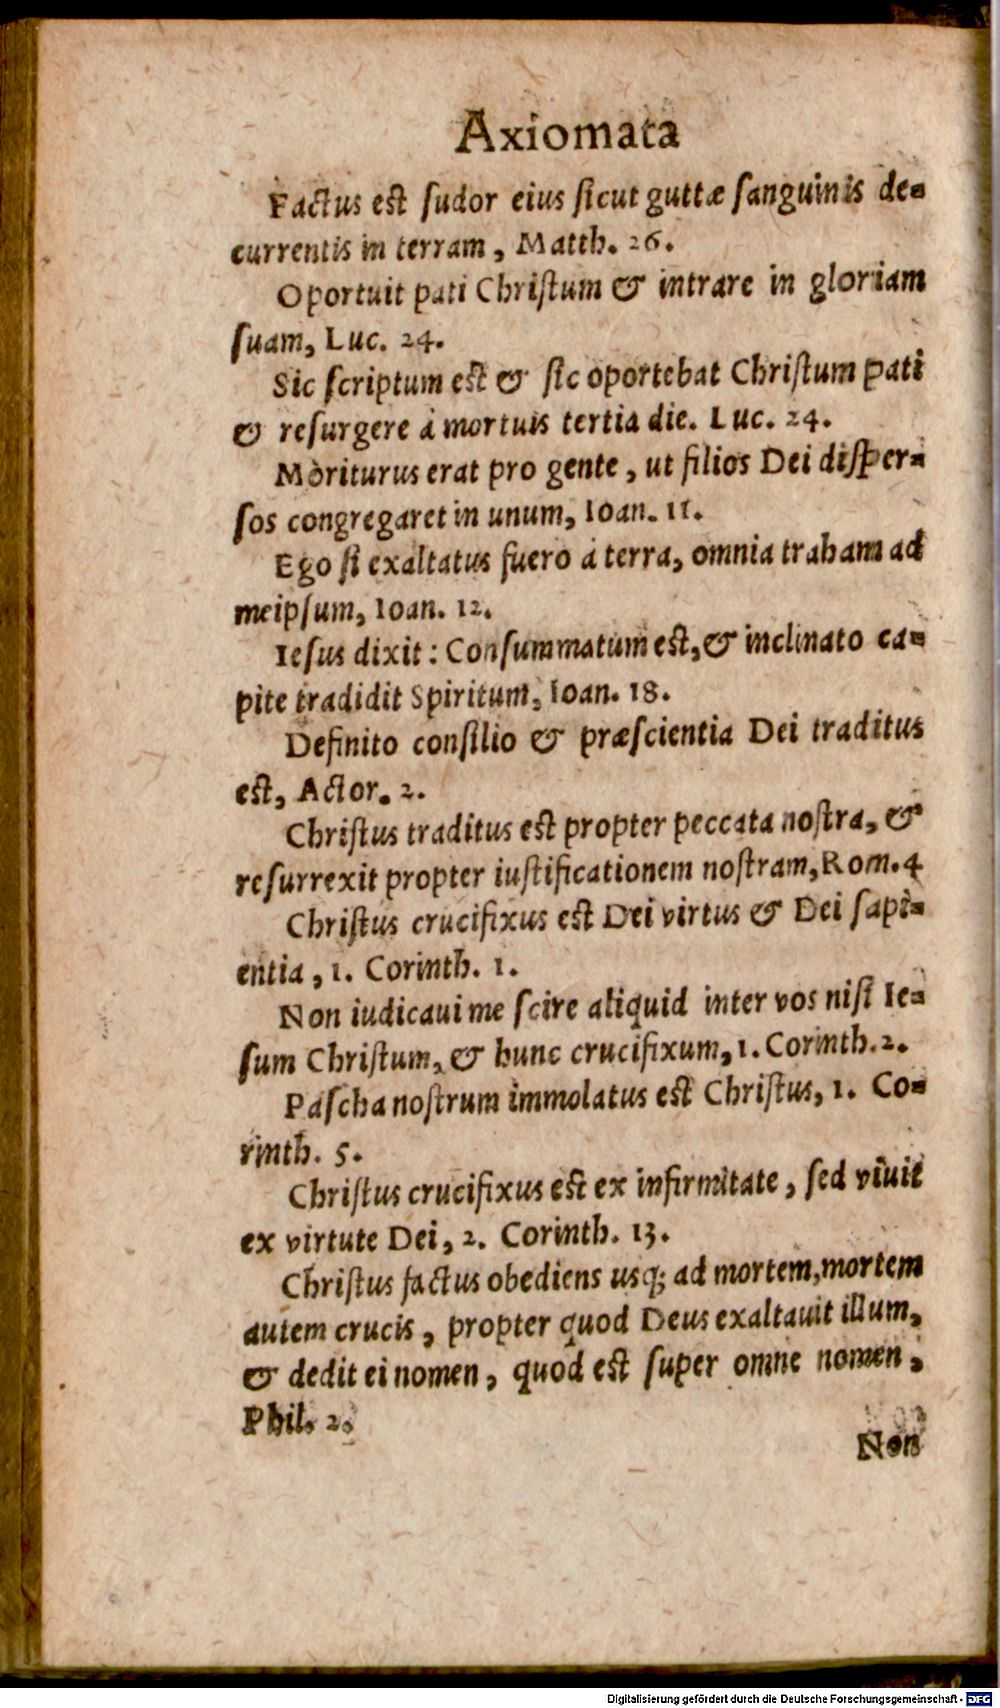 Axiomata
Factus est ſudor eius ſicut guttæ ſanguinis de-
currentis in terram, Matth. 26.
Oportuit pati Chriſtum & intrare in gloriam
ſuam, Luc. 24.
Sic ſcriptum est & ſic oportebat Chriſtum pati
& reſurgere à mortuis tertia die. Luc. 24.
Moriturus erat pro gente, ut filios Dei diſper-
ſos congregaret in unum, Ioan. 11.
Ego ſi exaltatus fuero à terra, omnia traham ad
meipſum, Ioan. 12.
Ieſus dixit: Conſummatum est, & inclinato ca-
pite tradidit Spiritum, Ioan. 18.
Definito conſilio & præſcientia Dei traditus
est, Actor. 2.
Chriſtus traditus est propter peccata noſtra, &
reſurrexit propter iuſtificationem noſtram, Rom. 4
Chriſtus crucifixus est Dei virtus & Dei ſapi-
entia, 1. Corinth. 1.
Non iudicaui me ſcire aliquid inter vos niſi Ie-
ſum Chriſtum, & hunc crucifixum, 1. Corinth. 2.
Paſcha noſtrum immolatus est Chriſtus, 1. Co-
rinth. 5.
Chriſtus crucifixus est ex infirmitate, ſed viuit
ex virtute Dei, 2. Corinth. 13.
Chriſtus factus obediens usq; ad mortem, mortem
autem crucis, propter quod Deus exaltauit illum,
& dedit ei nomen, quod est ſuper omne nomen,
Phil. 2.
Non
Digitalisierung gefördert durch die Deutsche Forschungsgemeinschaft - DFG